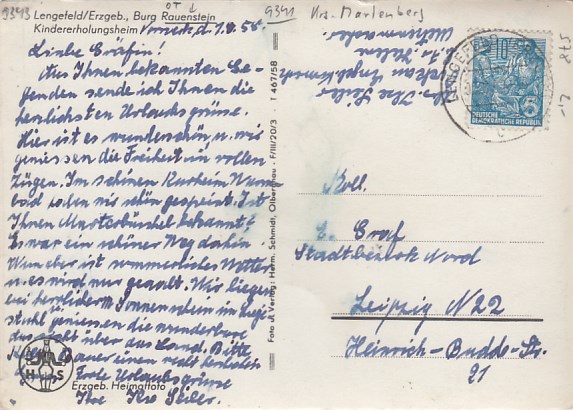 9343
OT ↓
Lengefeld/Erzgeb., Burg Rauenstein
Kindererholungsheim
d. 7.8.58.
Liebe Gräfin!
Aus Ihnen bekannten Ge-
genden sende ich Ihnen die
herzlichsten Urlaubsgrüße.
Hier ist es wunderschön u. wir
geniessen die Freiheit in vollen
Zügen. Im schönen Kurheim Warm-
bad haben wir schön gespeist. Ist
Ihnen bekannt?
Es war ein schöner Weg dahin.
Nun aber ist sommerliches Wetter
u. es wird nur geaalt. Wir liegen
bei herrlichem Sonnenschein im Liege-
stuhl genießen die wunderbare
über das Land. Bitte
einen recht herzlichen
Frohe Urlaubsgrüße
Ihre Ilse Seiler.
H S
Erzgeb. Heimatfoto
Foto u. Verlag: Herm. Schmidt, Olbernhau - F/III/20/3 T 467/58
9341
Krs. Marienberg
Ilse Seiler
LENGEFELD
10
5
DEUTSCHE
DEMOKRATISCHE REPUBLIK
Koll.
E. Graf
Stadtbezirk Nord
Leipzig N 22
Heinrich-Budde-Str.
21